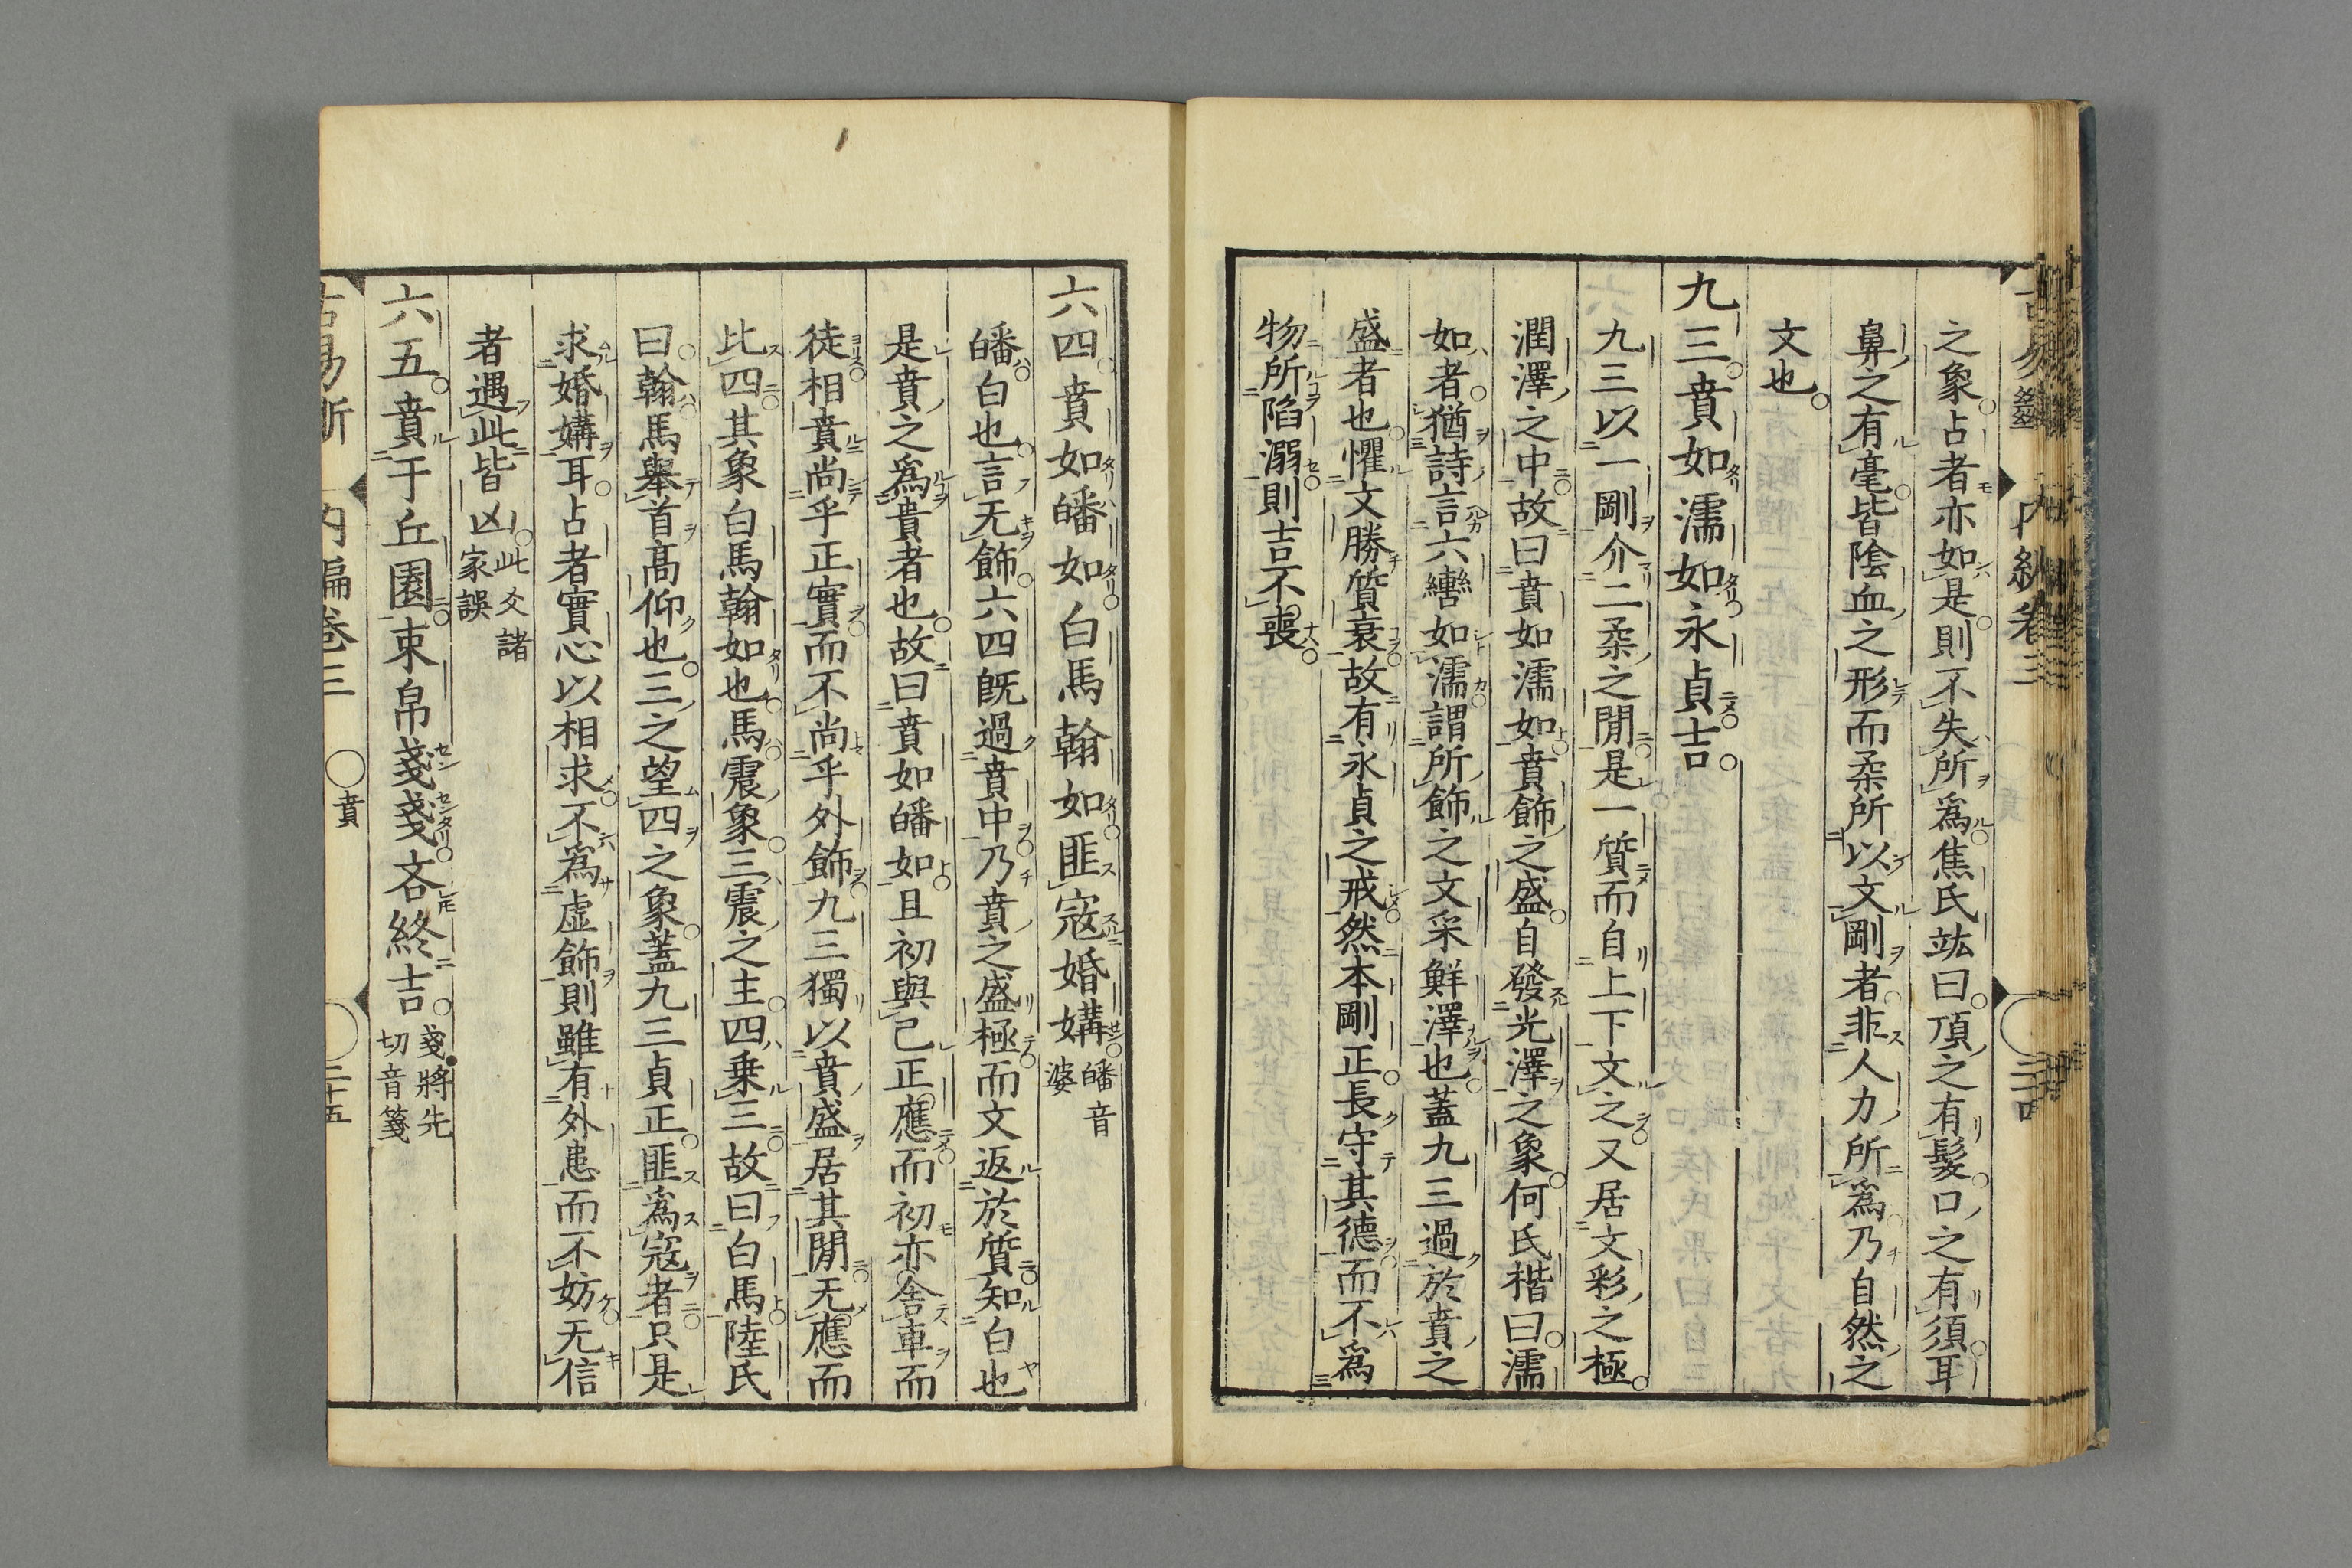 之象占者亦如是則不失所爲焦氏竑曰頂之有髮口之有須耳
鼻之有毫皆陰血之形而柔所以文剛者非人力所爲乃自然之
文也
九三賁如濡如永貞吉
九三以一剛介二柔之閒是一質而自上下文之又居文彩之極
潤澤之中故曰賁如濡如賁飾之盛自發光澤之象何氏楷曰濡
如者猶詩言六轡如濡謂所飾之文采鮮澤也蓋九三過於賁之
盛者也懼文勝質衰故有永貞之戒然本剛正長守其德而不爲
物所陷溺則吉不喪
六四賁如皤如白馬翰如匪寇婚媾 皤音婆
皤白也言无飾六四旣過賁中乃賁之盛極而文返於質知白也
是賁之爲貴者也故曰賁如皤如且初與己正應而初亦舎車而
徒相賁尚乎正實而不尚乎外飾九三獨以賁盛居其閒无應而
比四其象白馬翰如也馬震象三震之主四乗三故曰白馬陸氏
曰翰馬舉首髙仰也三之望四之象蓋九三貞正匪爲寇者只是
求婚媾耳占者實心以相求不爲虛飾則雖有外患而不妨无信
者遇此皆凶 此爻諸家誤
六五賁于丘園束帛戔戔吝終吉 戔將先切音箋
易斷 內編卷三 ○賁 二十五